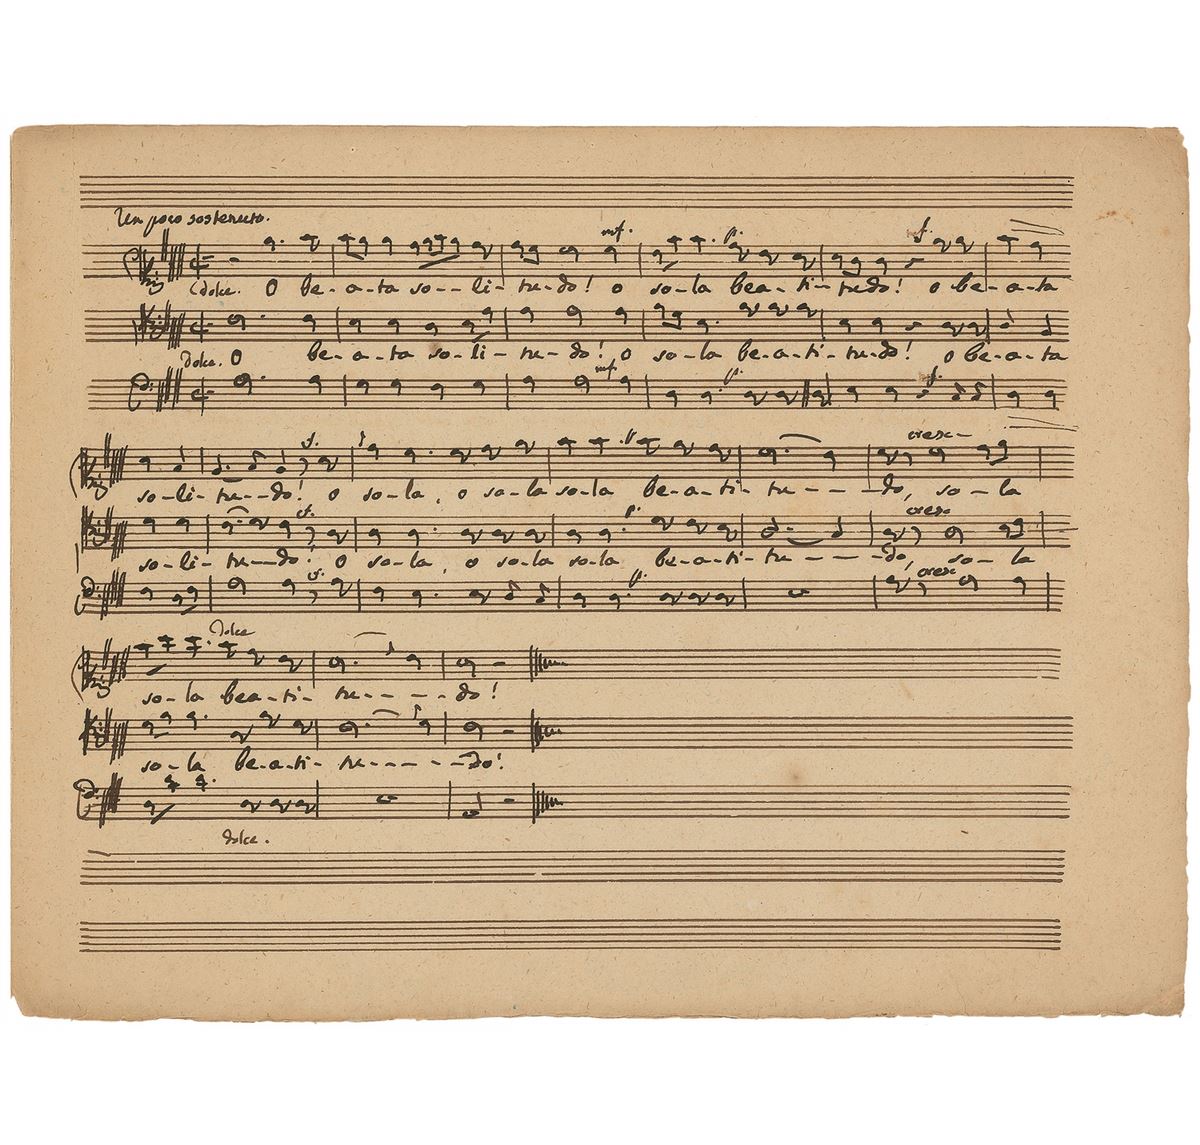 Un poco sostenuto.
mf. p. f.
dolce. O be-a-ta so--li-tu-do! o so-la bea-ti-tudo! o be-a-ta
dolce. O be-a-ta so-li-tu-do! o so-la be-a-ti-tu-do! o be-a-ta
mf. p. f.
cresc-
f. p.
so-li-tu--do! o so-la, o so-la so-la be-a-ti-tu---do, so-la
f. p. cresc
so-li-tu--do! O so-la, o so-la so-la be-a-ti-tu----do, so-la
f. p. cresc
dolce
so-la bea-ti-tu----do!
so-la be-a-ti-tu----do!
dolce.